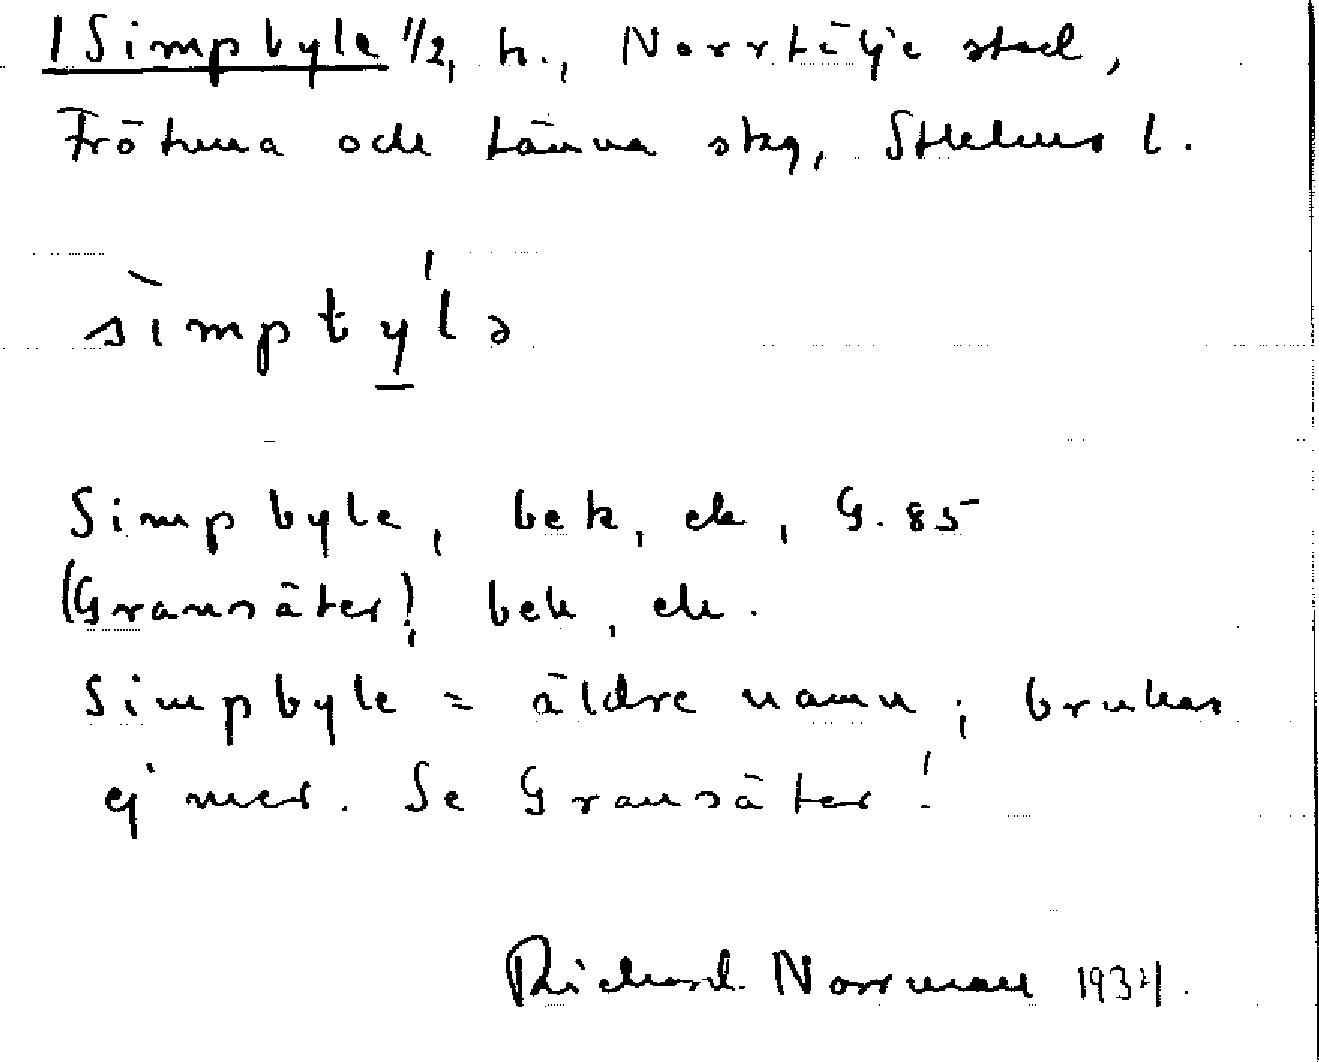 1 Simpbyle 1/2, h., Norrtälje stad,
Frötuna och Länna skg, Sthlms l.
sìmptý̲lə
Simpbyle, bek, ek, G. 85
(Gransäter) bek, ek.
Simpbyle = äldre namn; brukas
ej mer. Se Gransäter!
Richard Norrman 1934.